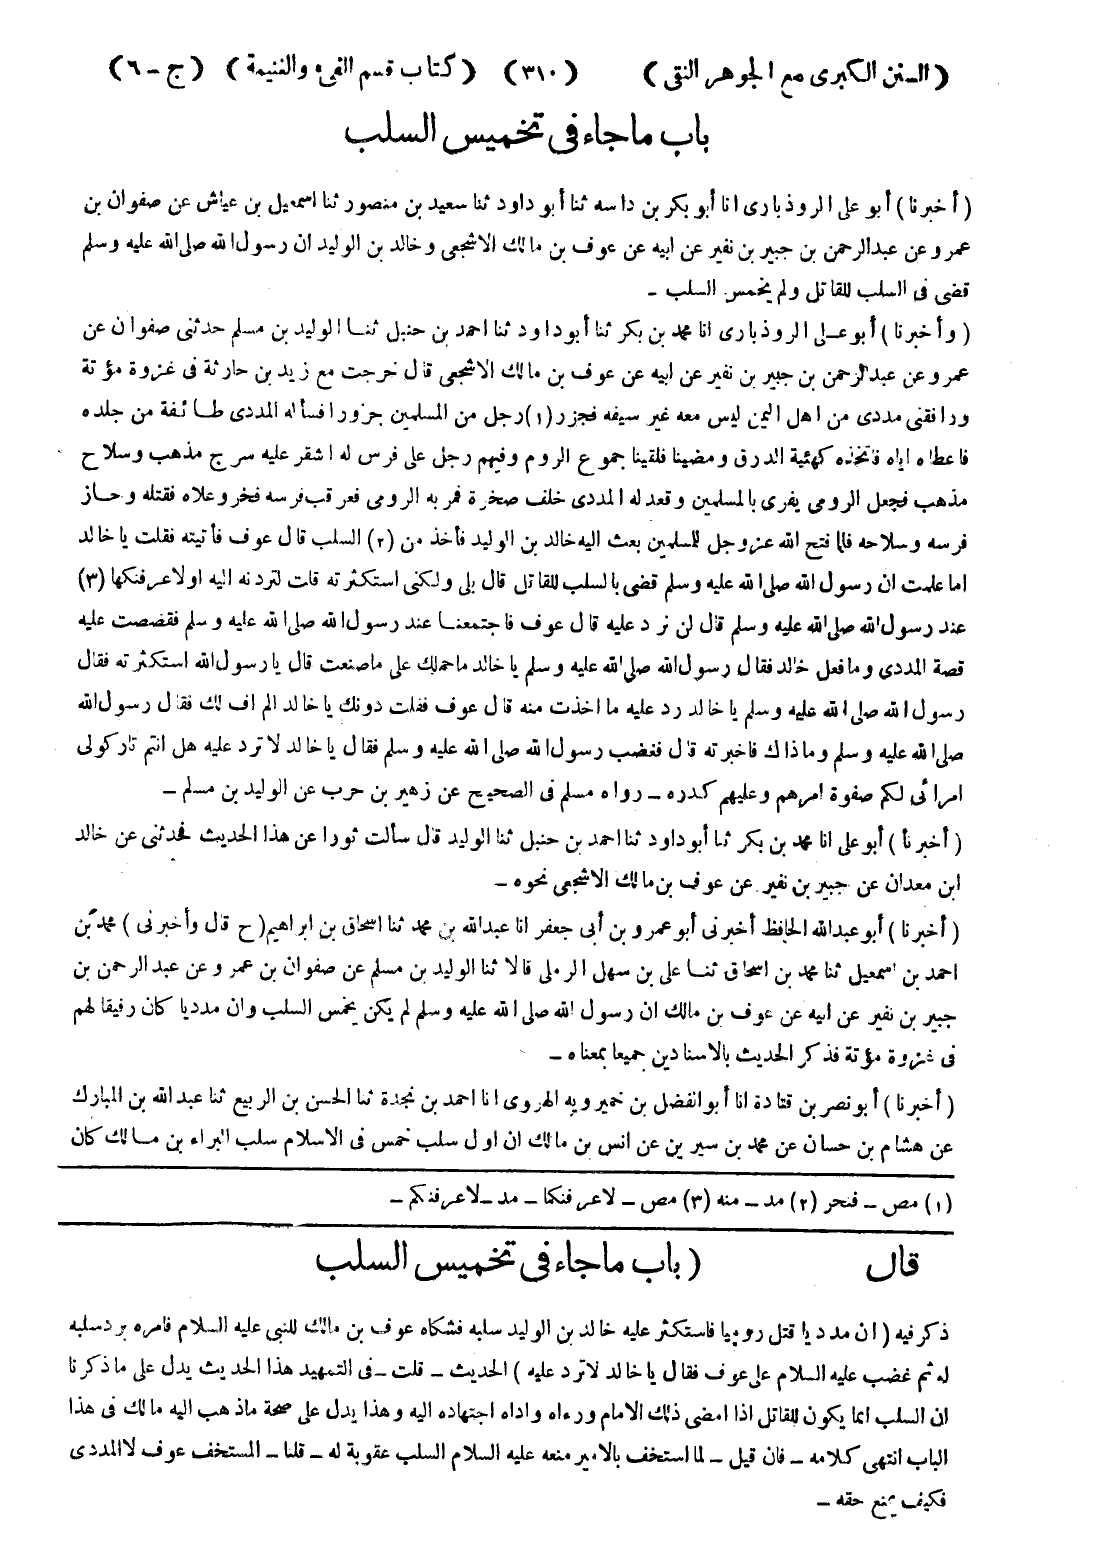 (السنن الكبرى مع الجوهر النقى) (٣١٠) (كتاب قسم الفىء والغنيمة) (ج ـ ٦)
باب ماجاء فى تخميس السلب
(أخبرنا) أبو على الروذبارى انا أبو بكر بن داسه ثنا أبو داود ثنا سعيد بن منصور ثنا اسمعيل بن عياش عن صفوان بن
عمرو عن عبدالرحمن بن جبير بن نفير عن ابيه عن عوف بن مالك الاشجعى وخالد بن الوليد ان رسول الله صلى الله عليه وسلم
قضى فى السلب للقاتل ولم يخمس السلب ـ
(وأخبرنا) أبو عـلى الروذبارى انا محمد بن بكر ثنا أبو داود ثنا احمد بن حنبل ثنا الوليد بن مسلم حدثنى صفوان عن
عمرو عن عبدالرحمن بن جبير بن نفير عن ابيه عن عوف بن مالك الاشجعى قال خرجت مع زيد بن حارثة فى غزوة مؤتة
ورافقنى مددى من اهل اليمن ليس معه غير سيفه فجزر (١) رجل من المسلمين جزورا فسأله المددى طائفة من جلده
فاعطاه اياه فاتخذه كهئية الدرق ومضينا فلقينا جموع الروم وفيهم رجل على فرس له اشقر عليه سرج مذهب وسلاح
مذهب فجعل الرومى يفرى بالمسلمين وقعد له المددى خلف صخرة فمر به الرومى فعرقب فرسه فخر وعلاه فقتله وحاز
فرسه وسلاحه فلما فتح الله عزوجل للمسلمين بعث اليه خالد بن الوليد فأخذ من (٢) السلب قال عوف فأتيته فقلت يا خالد
اما علمت ان رسول الله صلى الله عليه وسلم قضى بالسلب للقاتل قال بلى ولكنى استكثرته قلت لتردنه اليه او لاعرفنكها (٣)
عند رسول الله صلى الله عليه وسلم قال لن نرد عليه قال عوف فاجتمعنا عند رسول الله صلى الله عليه وسلم فقصصت عليه
قصة المددى وما فعل خالد فقال رسول الله صلى الله عليه وسلم يا خالد ما حملك على ماصنعت قال يا رسول الله استكثرته فقال
رسول الله صلى الله عليه وسلم يا خالد رد عليه ما اخذت منه قال عوف فقلت دونك يا خالد الم اف لك فقال رسول الله
صلى الله عليه وسلم وماذاك فاخبرته قال فغضب رسول الله صلى الله عليه وسلم فقال يا خالد لا ترد عليه هل انتم تاركولى
امرائى لكم صفوة امرهم وعليهم كدره ـ رواه مسلم فى الصحيح عن زهير بن حرب عن الوليد بن مسلم ـ
(أخبرنا) أبو على انا محمد بن بكر ثنا أبو داود ثنا احمد بن حنبل ثنا الوليد قال سألت ثورا عن هذا الحديث فحدثنى عن خالد
ابن معدان عن جبير بن نفير عن عوف بن مالك الاشجعى نحوه ـ
(أخبرنا) أبو عبدالله الحافظ أخبرنى أبو عمرو بن أبى جعفر انا عبدالله بن محمد ثنا اسحاق بن ابراهيم (ح قال وأخبرنى) محمد بن
احمد بن اسمعيل ثنا محمد بن اسحاق ثنـا على بن سهل الرملى قالا ثنا الوليد بن مسلم عن صفوان بن عمرو عن عبد الرحمن بن
جبير بن نفير عن ابيه عن عوف بن مالك ان رسول الله صلى الله عليه وسلم لم يكن يخمس السلب وان مدديا كان رفيقا لهم
فى غزوة مؤتة فذكر الحديث بالاسنادين جميعا بمعناه ـ
(أخبرنا) أبو نصر بن قتادة انا أبو الفضل بن خميرويه الهروى انا احمد بن نجدة ثنا الحسن بن الربيع ثنا عبدالله بن المبارك
عن هشام بن حسان عن محمد بن سيرين عن انس بن مالك ان اول سلب خمس فى الاسلام سلب البراء بن مـالك كان
(١) مص ـ فنحر (٢) مد ـ منه (٣) مص ـ لاعرفنكما ـ مد ـ لاعرفنكم ـ
قال (باب ماجاء فى تخميس السلب
ذكر فيه (ان مدديا قتل روميا فاستكثر عليه خالد بن الوليد سلبه فشكاه عوف بن مالك للنبى عليه السلام فامره برد سلبه
له ثم غضب عليه السلام على عوف فقال يا خالد لا ترد عليه) الحديث ـ قلت ـ فى التمهيد هذا الحديث يدل على ما ذكرنا
ان السلب انما يكون للقاتل اذا امضى ذلك الامام ورءاه واداه اجتهاده اليه وهذا يدل على صحة ماذهب اليه مالك فى هذا
الباب انتهى كلامه ـ فان قيل ـ لما استخف بالامير منعه عليه السلام السلب عقوبة له ـ قلنا ـ المستخف عوف لا المددى
فكيف يمنع حقه ـ